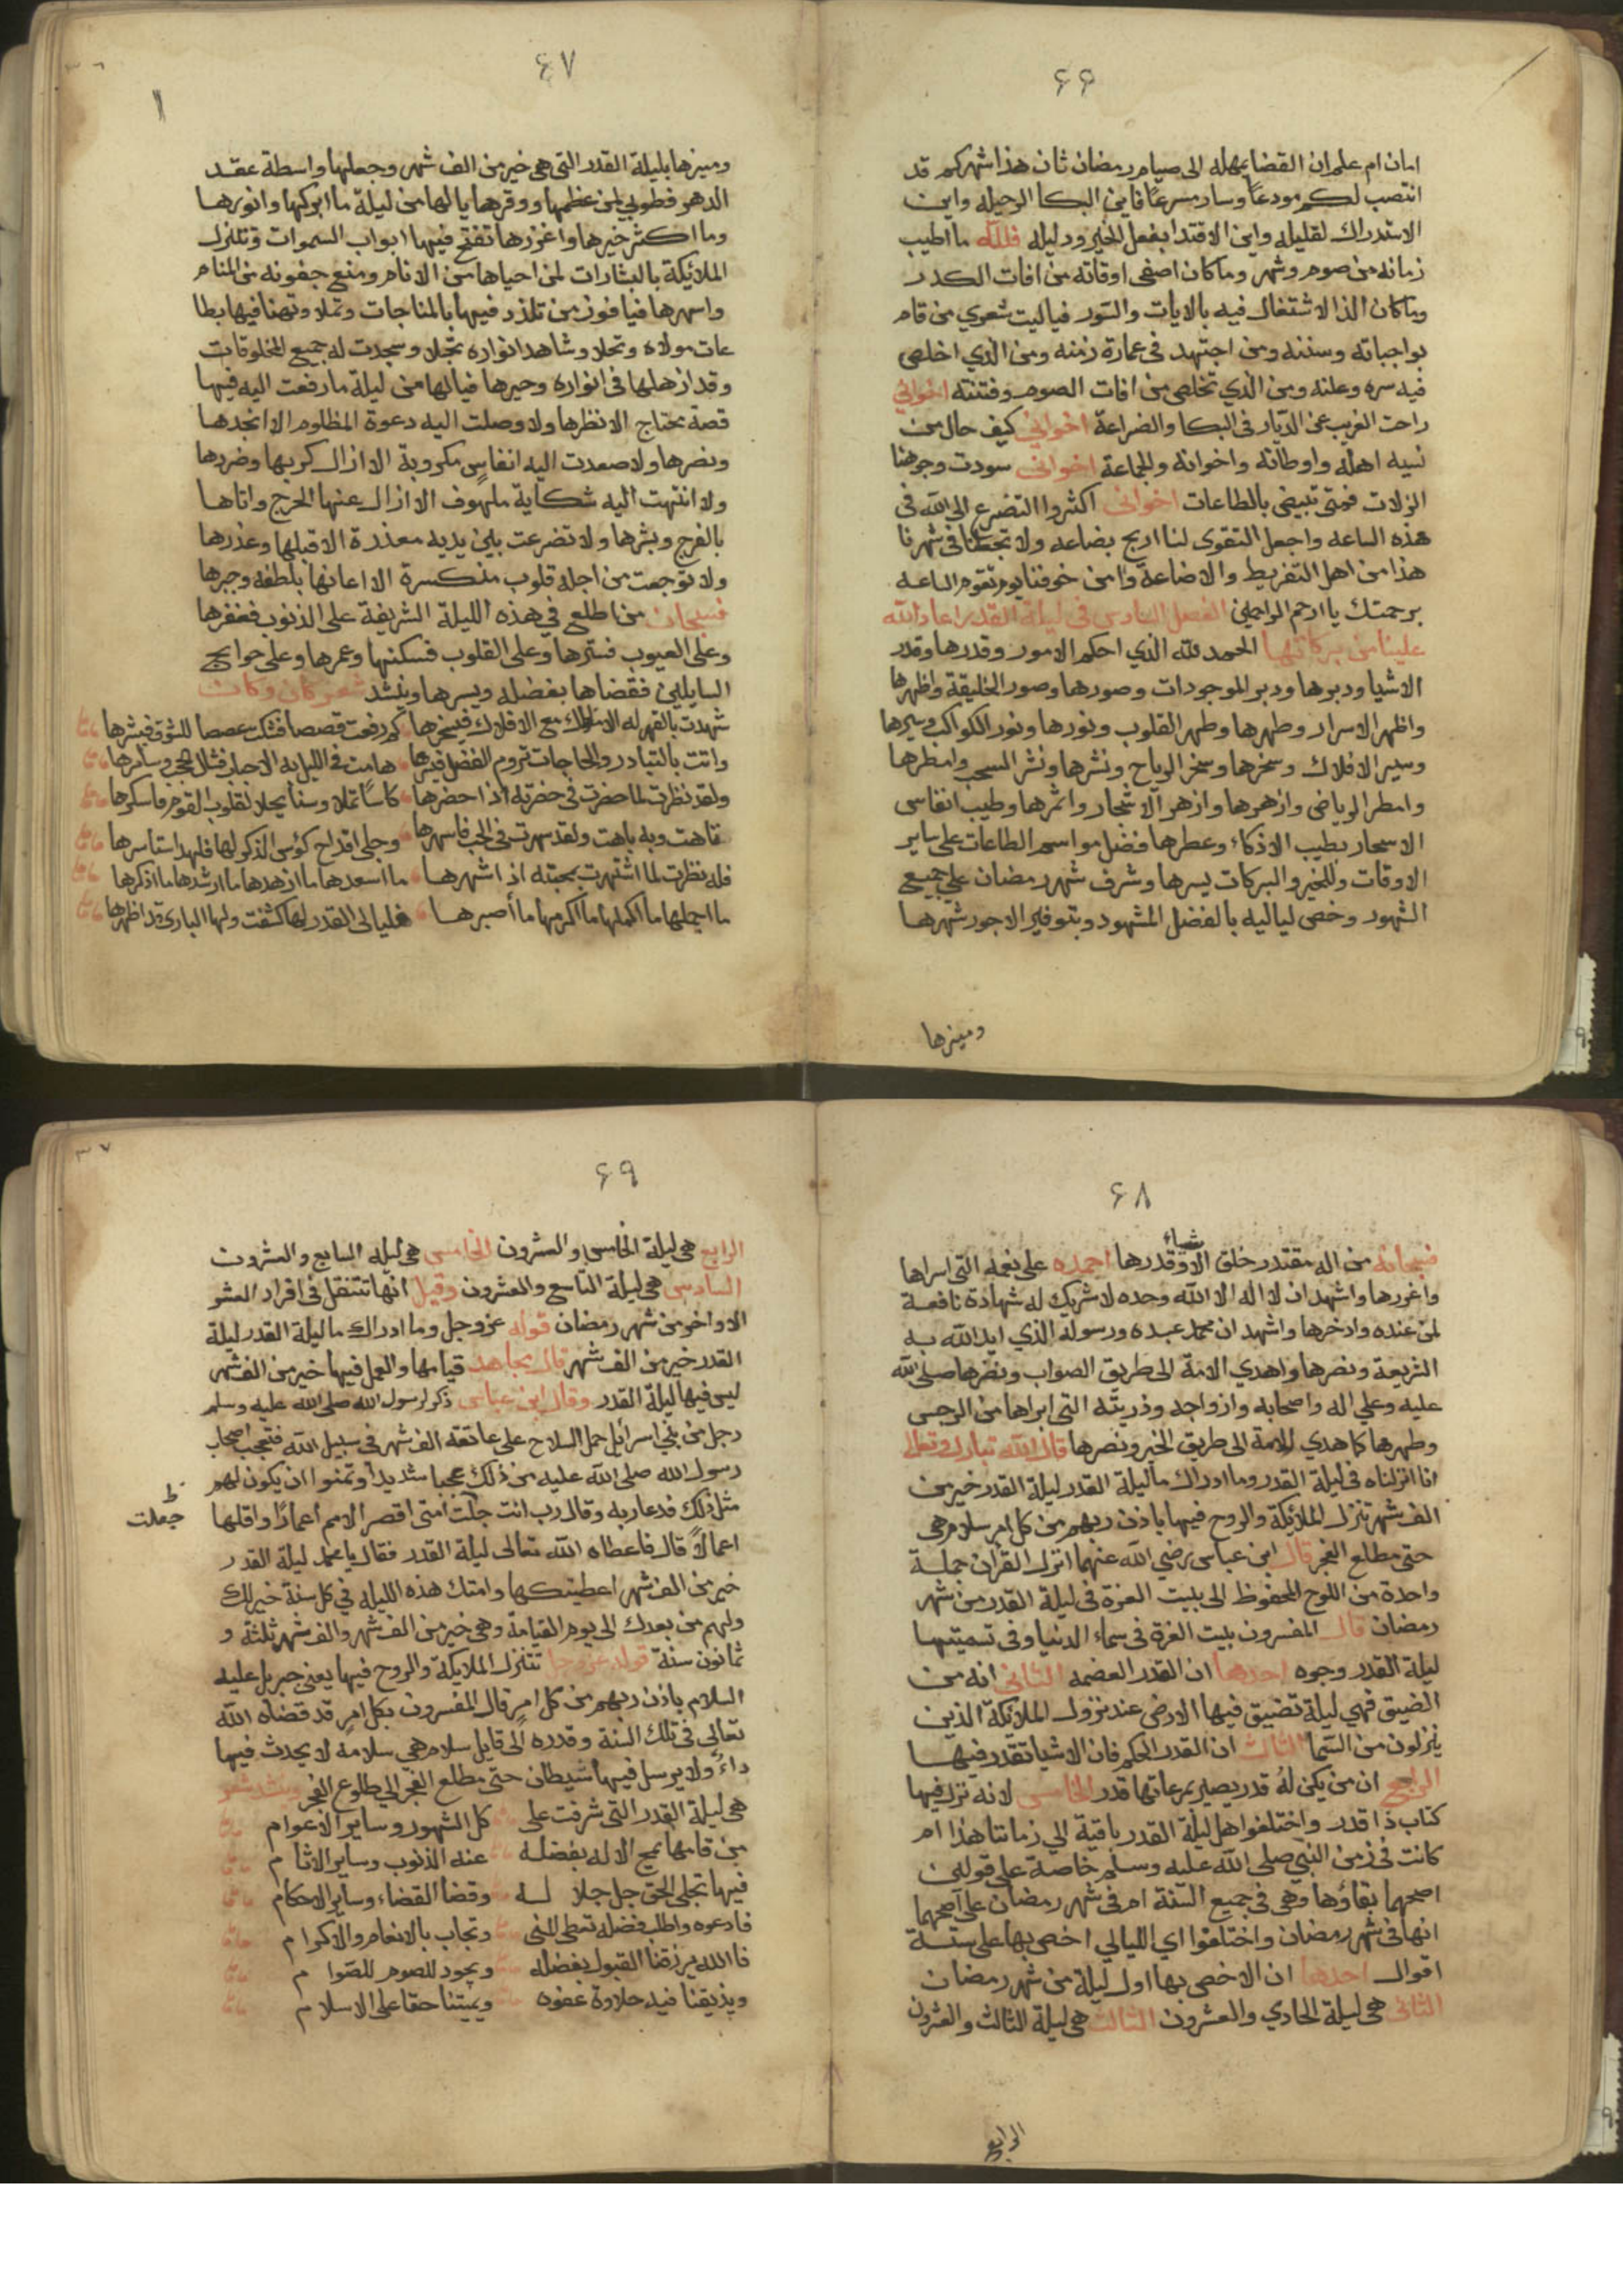 ۶۶
امان ام علم ان القضا يمهله الى صيام رمضان ثان هذا شهركم قد
انتصب لكم مودعاً وسار مسرعاً فاين البكا لرحيله واين
الاستدراك لقليله واين الاقتدا بفعل الخير ودليله فلله ما اطيب
زمانه من صوم وشهر وما كان اصفى اوقاته من افات الكدر
وما كان الذ الاشتغال فيه بالايات والسور فياليت شعري من قام
بواجباته وسننه ومن اجتهد فى عمارة زمنه ومن الذي اخلص
فيه سره وعلنه ومن الذي تخلص من افات الصوم وفتنته اخواني
راحت الغريب عن الديار فى البكا والضراعة اخواني كيف حال من
نسيه اهله واوطانه واخوانه والجماعة اخوانى سودت وجوهنا
الزلات فمتى تبيض بالطاعات اخوانى اكثروا التضرع الى الله فى
هذه الساعه واجعل التقوى لنا اربح بضاعه ولا تجعلنا فى شهرنا
هذا من اهل التفريط والاضاعة وامن خوفنا يوم تقوم الساعه
برحمتك يا ارحم الراحمين الفصل السادس فى ليلة القدر اعاد الله
علينا من بركاتها الحمد لله الذي احكم الامور وقدرها وقدر
الاشيا ودبرها ودبر الموجودات وصورها وصور الخليقة واظهرها
واظهر الاسرار وطهرها وطهر القلوب ونورها ونور الكواكب وسيرها
وسير الافلاك وسخرها وسخر الرياح ونشرها ونشر السحب وامطرها
وامطر الرياض وازهرها وازهر الاشجار واثمرها وطيب انفاس
الاسحار بطيب الاذكاء وعطرها فضل مواسم الطاعات على ساير
الاوقات وللخير والبركات يسرها وشرف شهر رمضان على جميع
الشهور وخص لياليه بالفضل المشهود وبتوفير الاجور شهرها
وميزها
۶۷
وميزها بليلة القدر التى هى خير من الف شهر وجعلها واسطة عقد
الدهر فطوبي لمن عظمها ووقرها يا لها من ليلة ما ابركها وانورها
وما اكثر خيرها واغزرها تفتح فيها ابواب السموات وتتنزل
الملائكة بالبشارات لمن احياها من الانام ومنع جفونه من المنام
واسهرها فيا فوز من تلذذ فيها بالمناجات وتملا وتهنا فيها بطا
عات مولاه وتحلا وشاهد انواره تجلا وسجدت له جميع المخلوقات
وقد ازهلها فى انواره وحيرها فيالها من ليلة ما رفعت اليه فيها
قصة محتاج الا نظرها ولا وصلت اليه دعوة المظلوم الا انجدها
ونصرها ولا صعدت اليه انفاس مكروبة الا ازال كربها وضررها
ولا انتهت اليه شكاية ملهوف الا ازال عنها الحرج واتاها
بالفرج وبشرها ولا تضرعت بين يديه معذرة الا قبلها وعذرها
ولا توجعت من اجله قلوب منكسرة الا اعانها بلطفه وجبرها
فسبحان من اطلع في هذه الليلة الشريفة على الذنوب فغفرها
وعلى العيوب فسترها وعلى القلوب فسكنها وعمرها وعلى حوايج
السايلين فقضاها بفضله ويسرها وينشد شعر كان وكان
شهدت بالقهر له الاملاك مع الافلاك فيسخرها كم رفعت قصصا فشكت غصصا للشوق فبشرها
واتت بالتبادر والحاجات تروم الفضل هامت فى الليل به الاحبار
ولقد نظرت لما حضرت فى حضرته اذ احضرها كاساً تملا وسنا يجلا لقلوب القوم فاسكرها
تاهت وبه باهت ولقد سهرت فى الحب فاسهرها وجلى اقداح كؤس الذكر لها فلهذا استاسرها
فله نظرت لما اشتهرت بمحبته اذ اشهرها ما اسعدها ما ازهدها ما ارشدها ما اذكرها
ما اجملها ما اكملها ما اكرمها ما أصبرها فليالى القدر لها كشفت ولها البارى قد اظهرها
۶۸
فسبحانه من اله مقتدر خلق الاشياء وقدرها احمده على نعمه التى اسراها
واغزرها واشهد ان لا اله الا الله وحده لا شريك له شهادة نافعة
لمن عنده وادخرها واشهد ان محمد عبده ورسوله الذي ايد الله به
الشريعة ونصرها واهدي الامة الى طريق الصواب ونصرها صلى الله
عليه وعلي اله واصحابه وازواجه وذريته التى ابراها من الرجس
وطهرها كما هدي الامة الى طريق الخير ونصرها قال الله تبارك وتعالى
انا انزلناه فى ليلة القدر وما ادراك ما ليلة القدر ليلة القدر خير من
الف شهر تنزل الملائكة والروح فيها باذن ربهم من كل امر سلام هى
حتى مطلع الفجر قال ابن عباس رضي الله عنهما انزل القران جملة
واحدة من اللوح المحفوظ الى بيت العزة فى ليلة القدر من شهر
رمضان قال المفسرون بيت العزة فى سماء الدنيا وفى تسميتها
ليلة القدر وجوه احدها ان القدر العضمه الثانى انه من
الضيق فهى ليلة تضيق فيها الارض عند نزول الملائكة الذين
ينزلون من السما الثالث ان القدر الحكم فان الاشيا تقدر فيها
الرابع ان من يكن لهُ قدر يصير بمرعاتها قدر الخامس لانه نزل فيها
كتاب ذا قدر واختلفوا هل ليلة القدر باقية الي زماننا هذا ام
كانت فى زمن النبي صلى الله عليه وسلم خاصة على قولين
اصحهما بقاؤها وهى فى جميع السنة ام فى شهر رمضان على اصحهما
انها فى شهر رمضان واختلفوا اي الليالي اخص بها على ستة
اقوال احدها ان الاخص بها اول ليلة من شهر رمضان
الثانى هى ليلة الحادي والعشرون الثالث هى ليلة الثالث والعشرون
الرابع
۶۹
الرابع هى ليلة الخامس والعشرون الخامس هى ليله السابع والعشرون
السادس هى ليلة التاسع والعشرون وقيل انها تتنقل فى افراد العشر
الاواخر من شهر رمضان قوله عز وجل وما ادراك ما ليلة القدر ليلة
القدر خير من الف شهر قال مجاهد قيامها والعمل فيها خير من الف شهر
ليس فيها ليلة القدر وقال ابن عباس ذكر لرسول الله صلى الله عليه وسلم
رجل من بني اسرائيل حمل السلاح على عاتقه الف شهر فى سبيل الله فتعجب اصحاب
رسول الله صلى الله عليه من ذلك عجبا شديداً وتمنوا ان يكون لهم
مثل ذلك فدعا ربه وقال رب انت جلت امتى اقصر الامم اعمارًا واقلها
ظ
جعلت
اعمالاً قال فاعطاه الله تعالى ليلة القدر فقال يا محمد ليلة القدر
خير من الف شهر اعطيتكها وامتك هذه الليله في كل سنة خير لك
ولهم من بعدك الى يوم القيامة وهى خير من الف شهر والف شهر ثلثة و
ثمانون سنة قوله عز وجل تتنزل الملايكة والروح فيها يعنى جبريل عليه
السلام باذن ربهم من كل امر قال المفسرون بكل امرٍ قد قضاه الله
تعالى فى تلك السنة وقدره الى قايل سلام هى سلامه لا يحدث فيها
داءٌ ولا يرسل فيها شيطان حتى مطلع الفجر الي طلوع الفجر وينشد شعر
هى ليلة القدر التى شرفت على كل الشهور وساير الاعوام
من قامها يمح الاله بفضله عنه الذنوب وساير الاثام
فيها تجلى الحق جل جلاله وقضا القضاء وساير الاحكام
فادعوه واطلب فضله تعطى المنى وتجاب بالانعام والاكرام
فالله يرزقنا القبول بفضله ويجود للصوم للصوام
ويذيقنا فيه حلاوة عفوه ويميتنا حقا على الاسلام